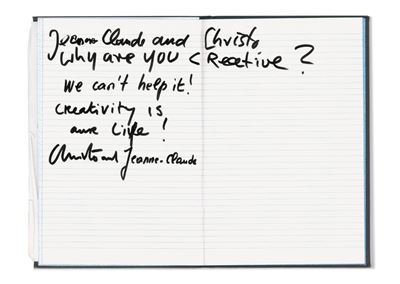 Jeanne Claude and Christo
Why are you creative?
We can't help it!
creativity is
our Life!
Christo and Jeanne-Claude